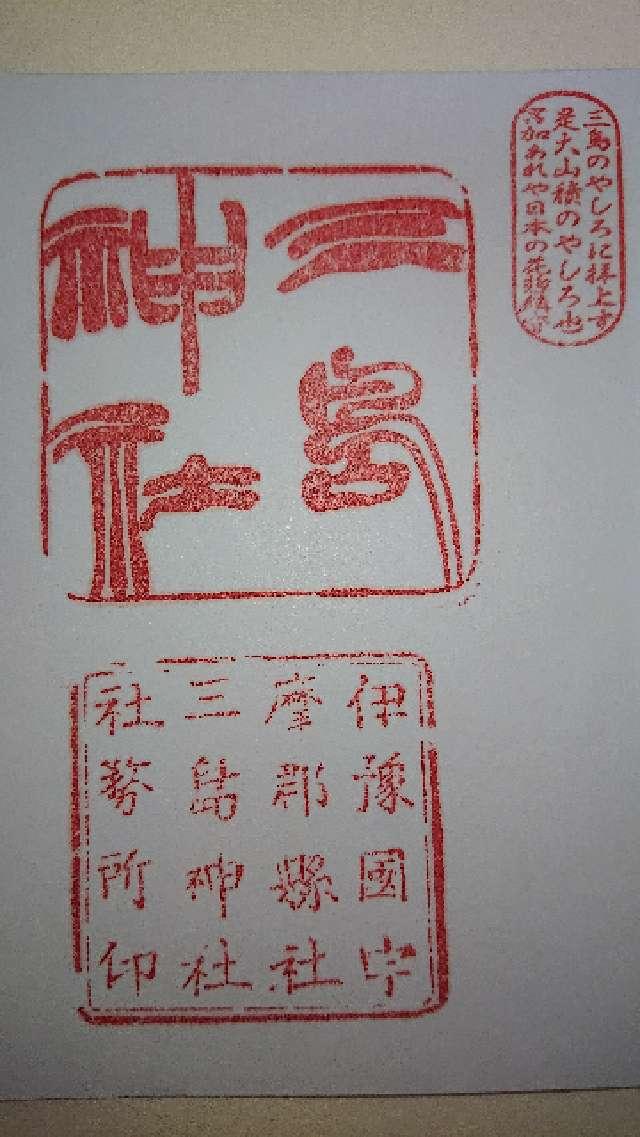 三島のやしろに拝上す
是大山積のやしろ也
あれや日本の
三島
神社
伊豫國宇
摩郡縣社
三島神社
社務所印